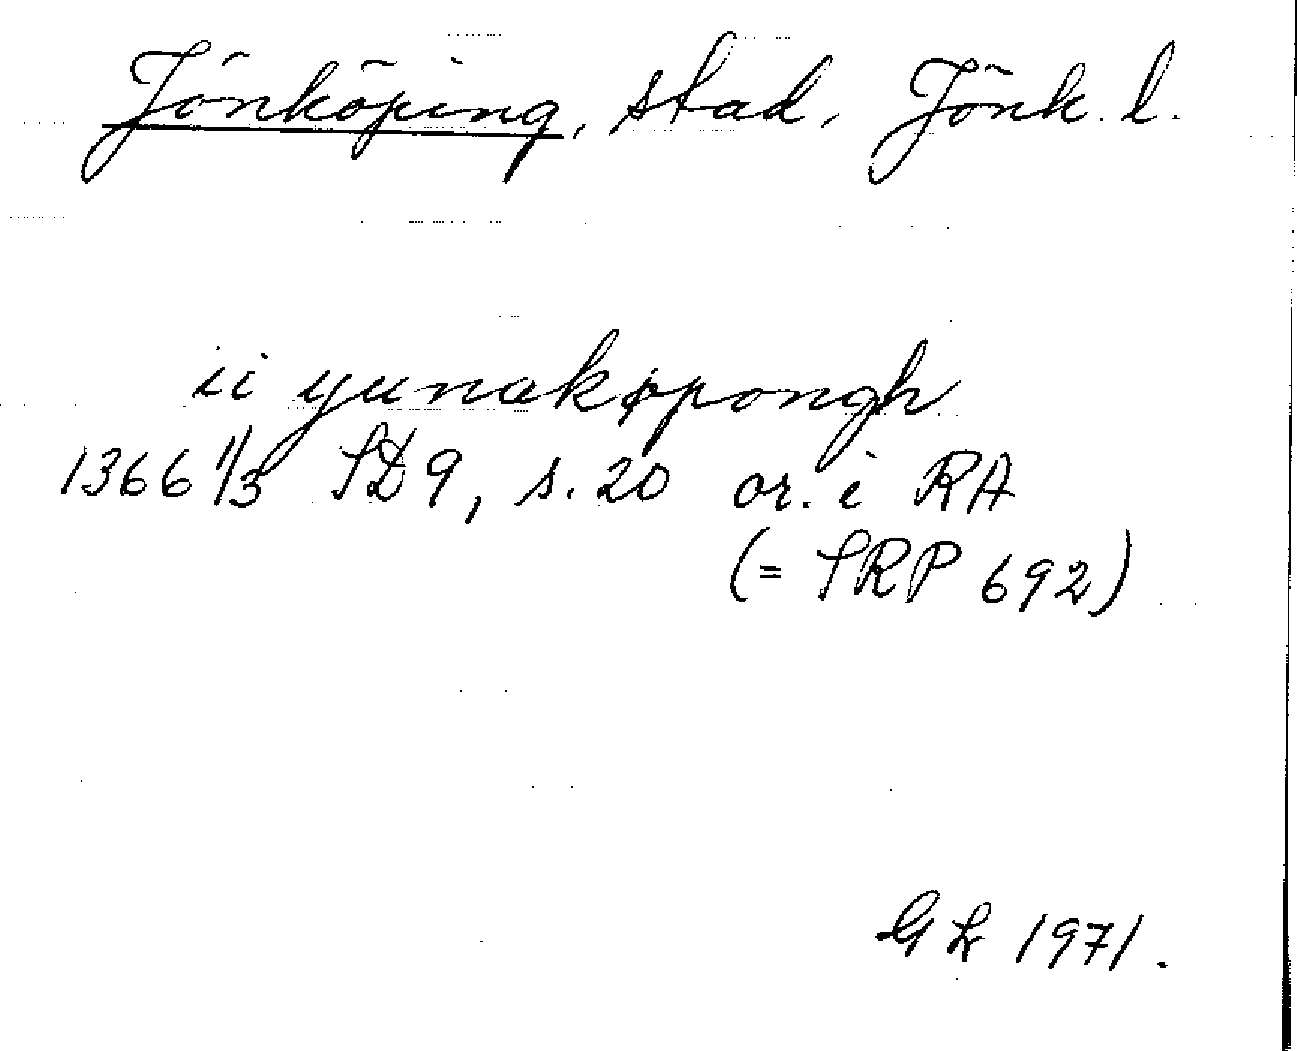 Jönköping, stad, Jönk. l.
ii yunakøpongh
1366 1/3 SD 9, s. 20 or. i RA
(= SRP 692)
GL 1971.